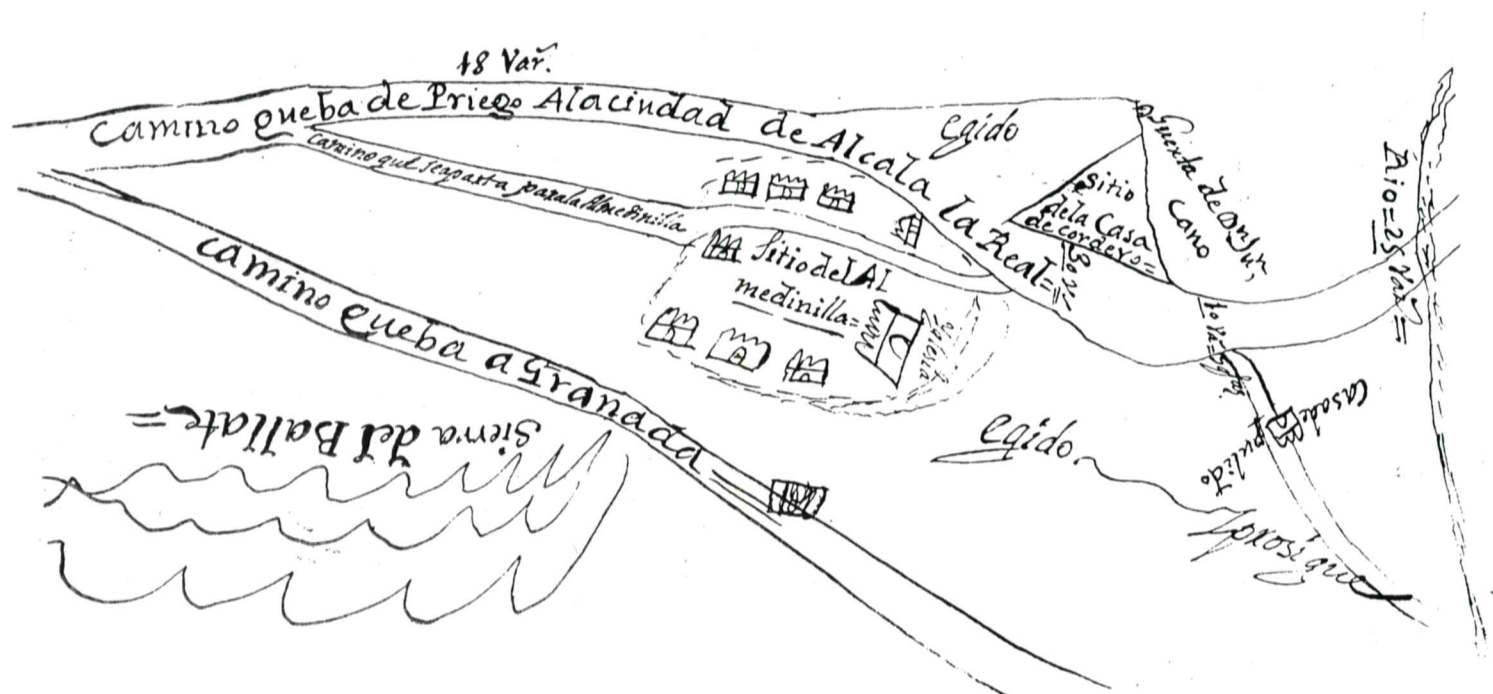 18 Var.
camino queba de Priego Alaciudad de Alcala la Real=
camino que seaparta parala Almedinilla
egido
Sitio
dela Casa
de cordero=
Guerta de
Cano
Rio=25 Var.=
Sitio del Al
medinilla=
Yglesia
camino queba a Granada
Sierra del Ballate=
egido
Casa de
pulido
prosigue